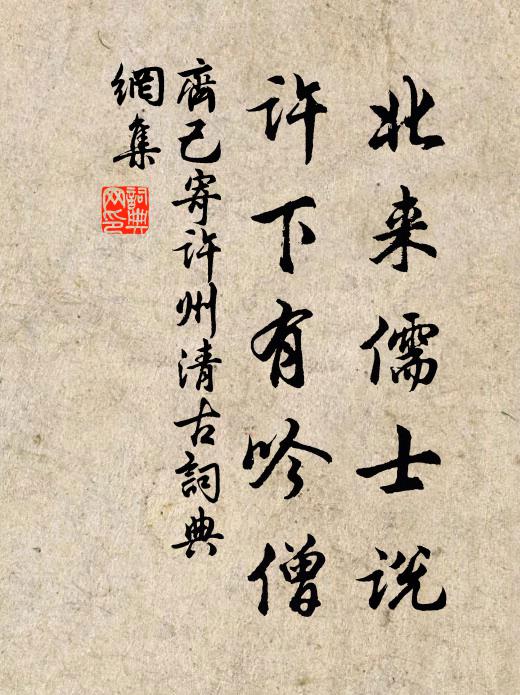 北来儒士説
许下有吟僧
齊己寄许州清古詞典
網集
詞典
网印